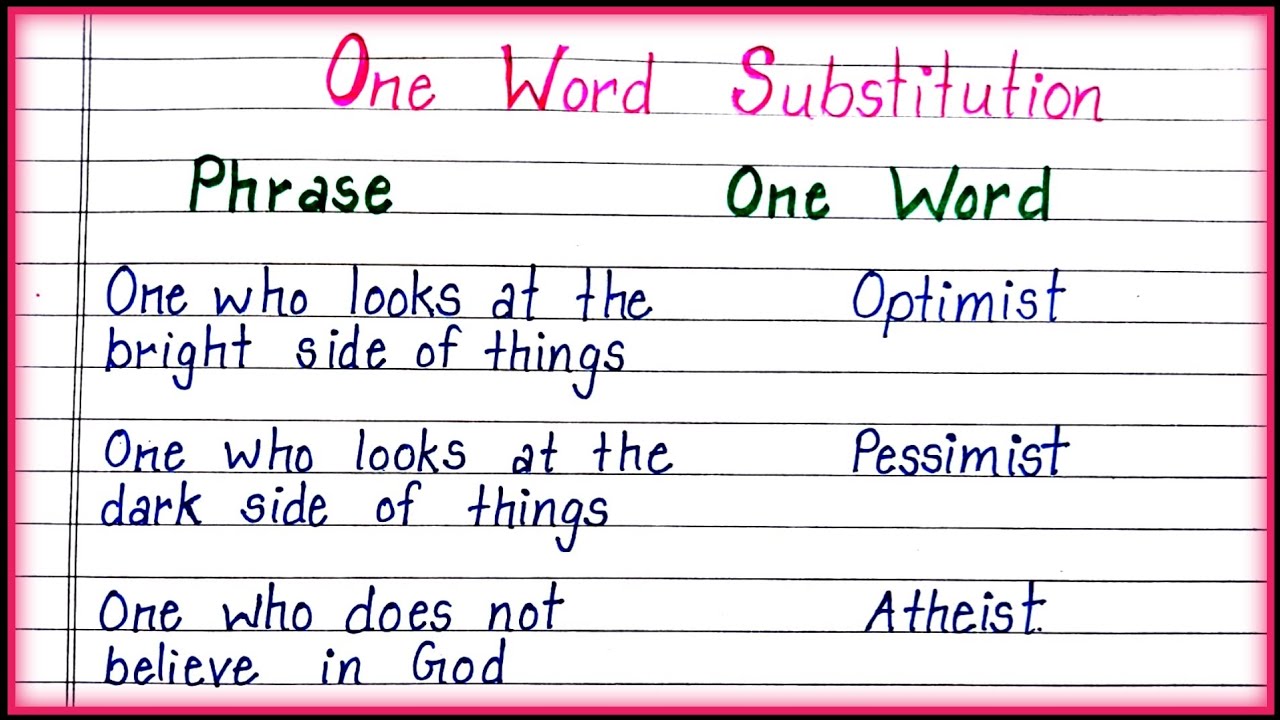 One Word Substitution
Phrase One Word
One who looks at the Optimist
bright side of things
One who looks at the Pessimist
dark side of things
One who does not Atheist.
believe in God